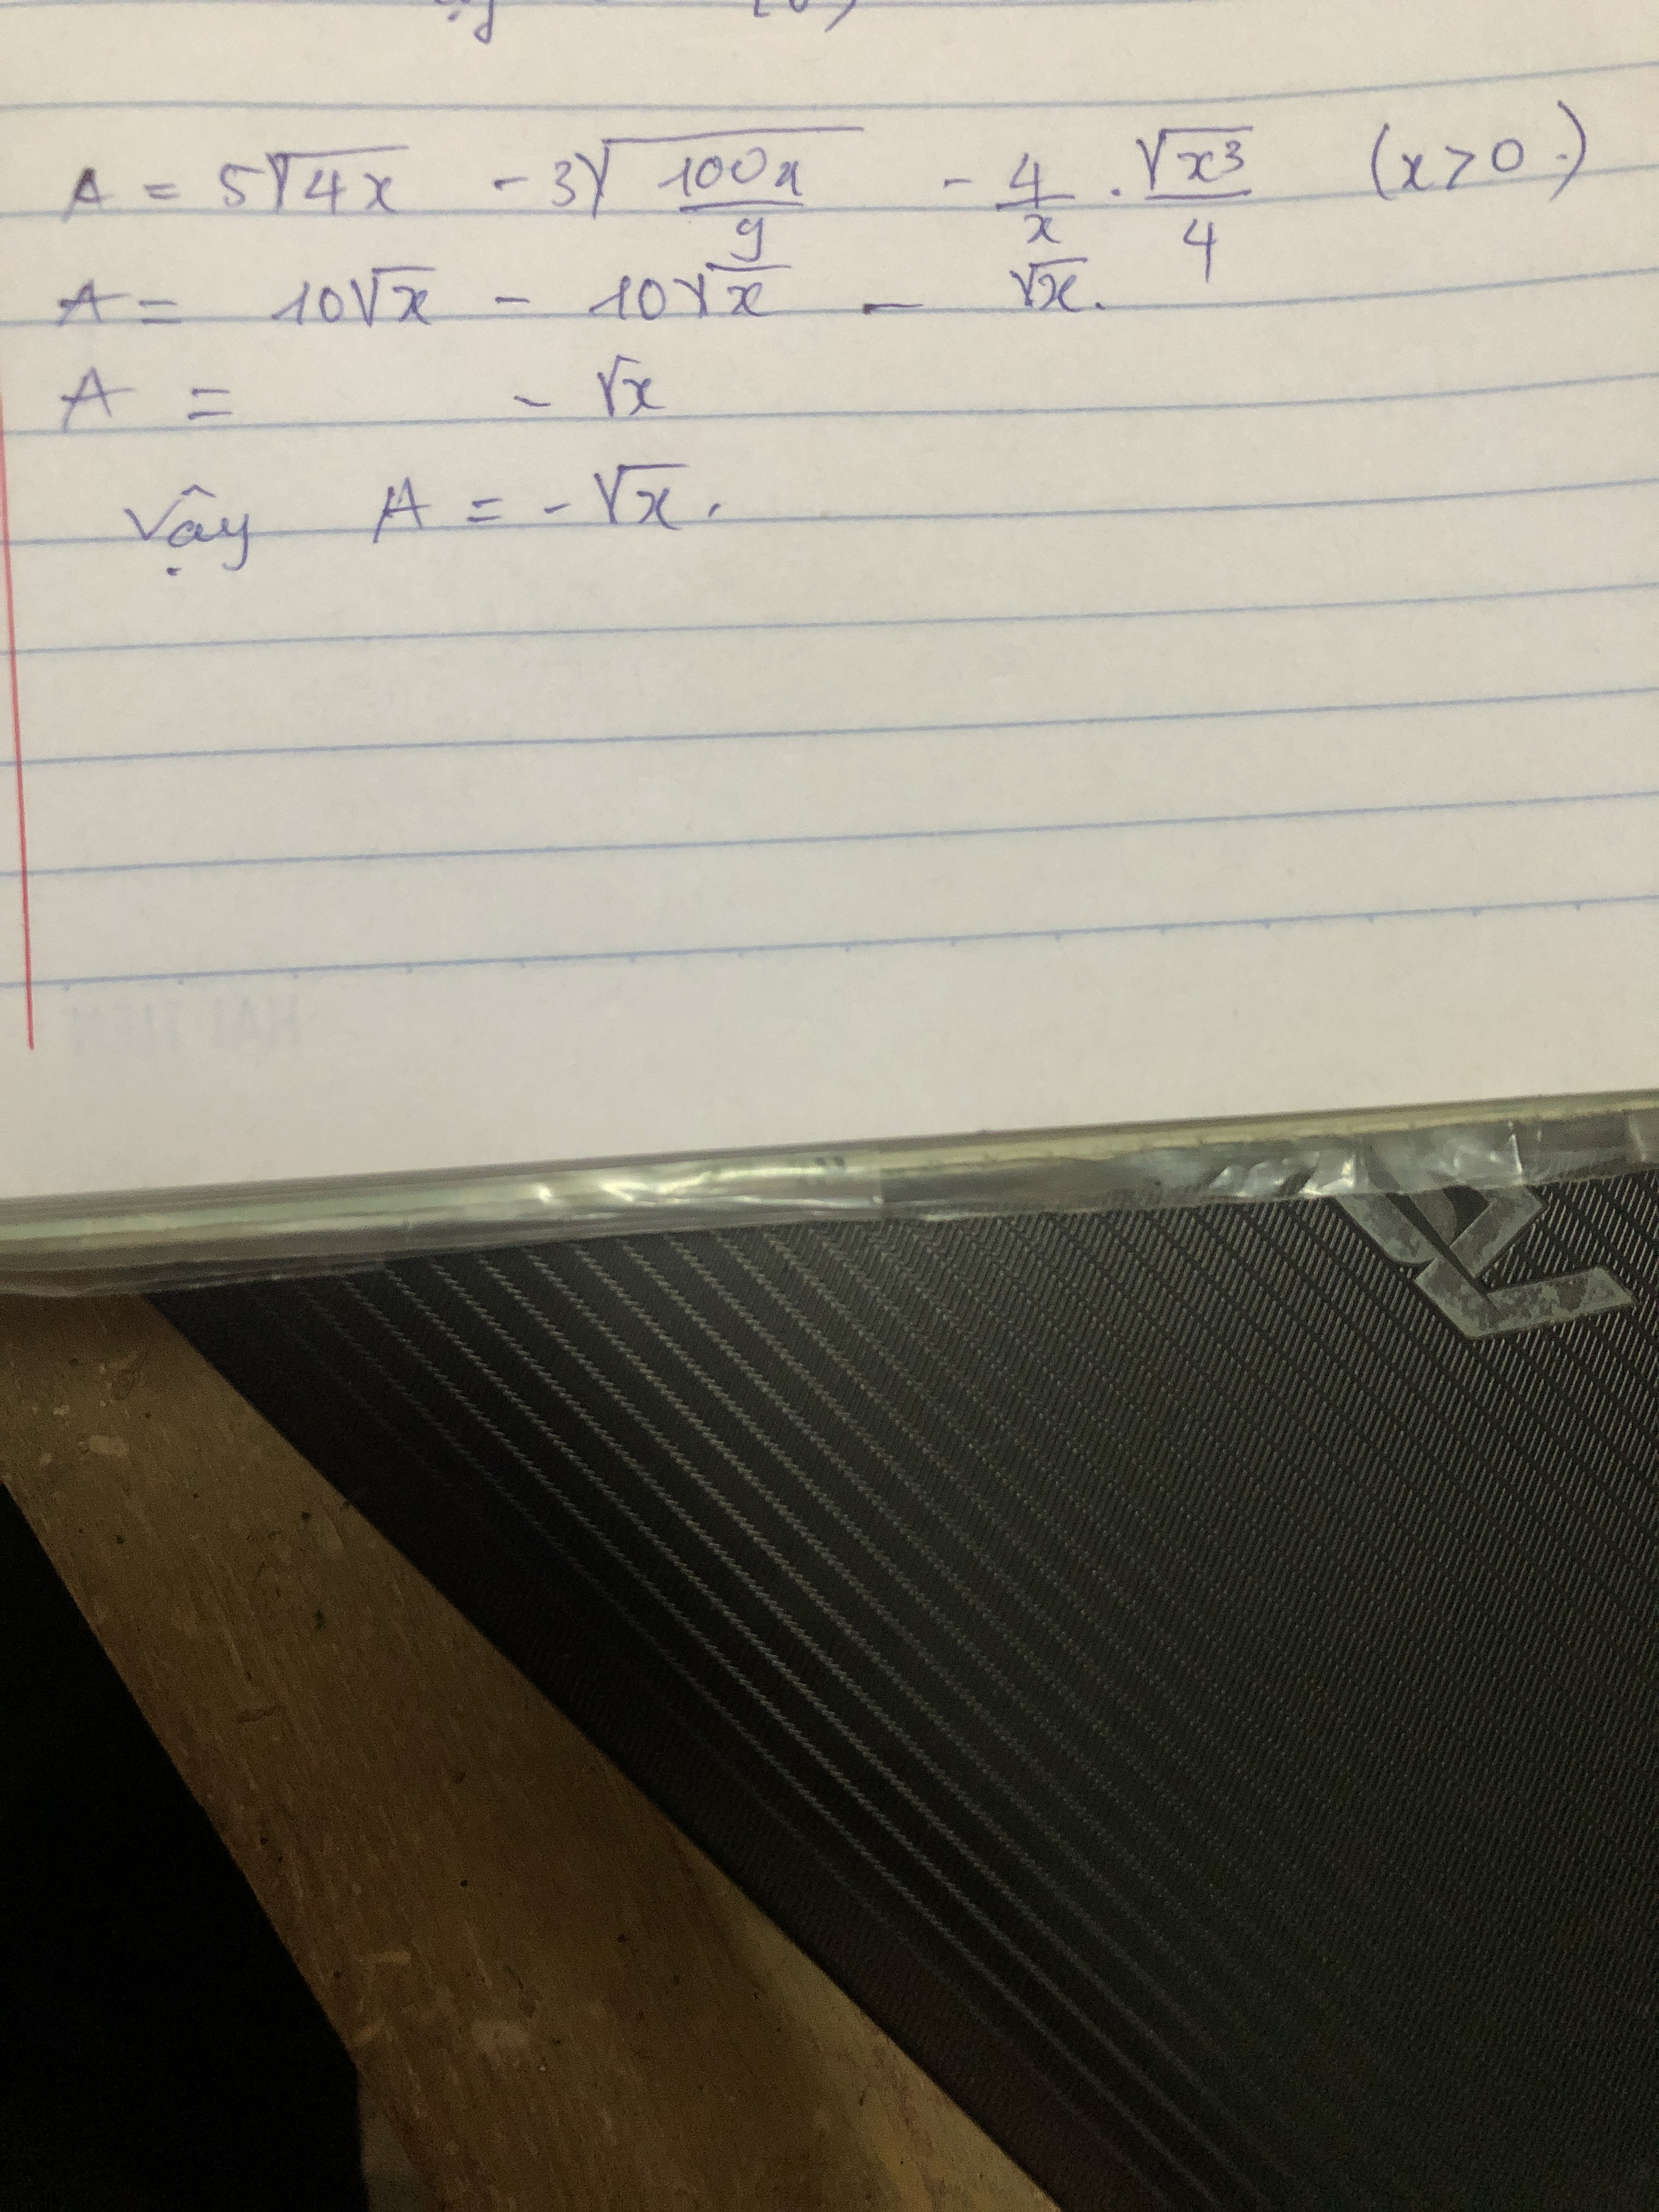 A = 5√4x - 3√(100x/9) - 4/x . √x³/4 (x>0.)
A = 10√x - 10√x - √x.
A = - √x
Vậy A = -√x.